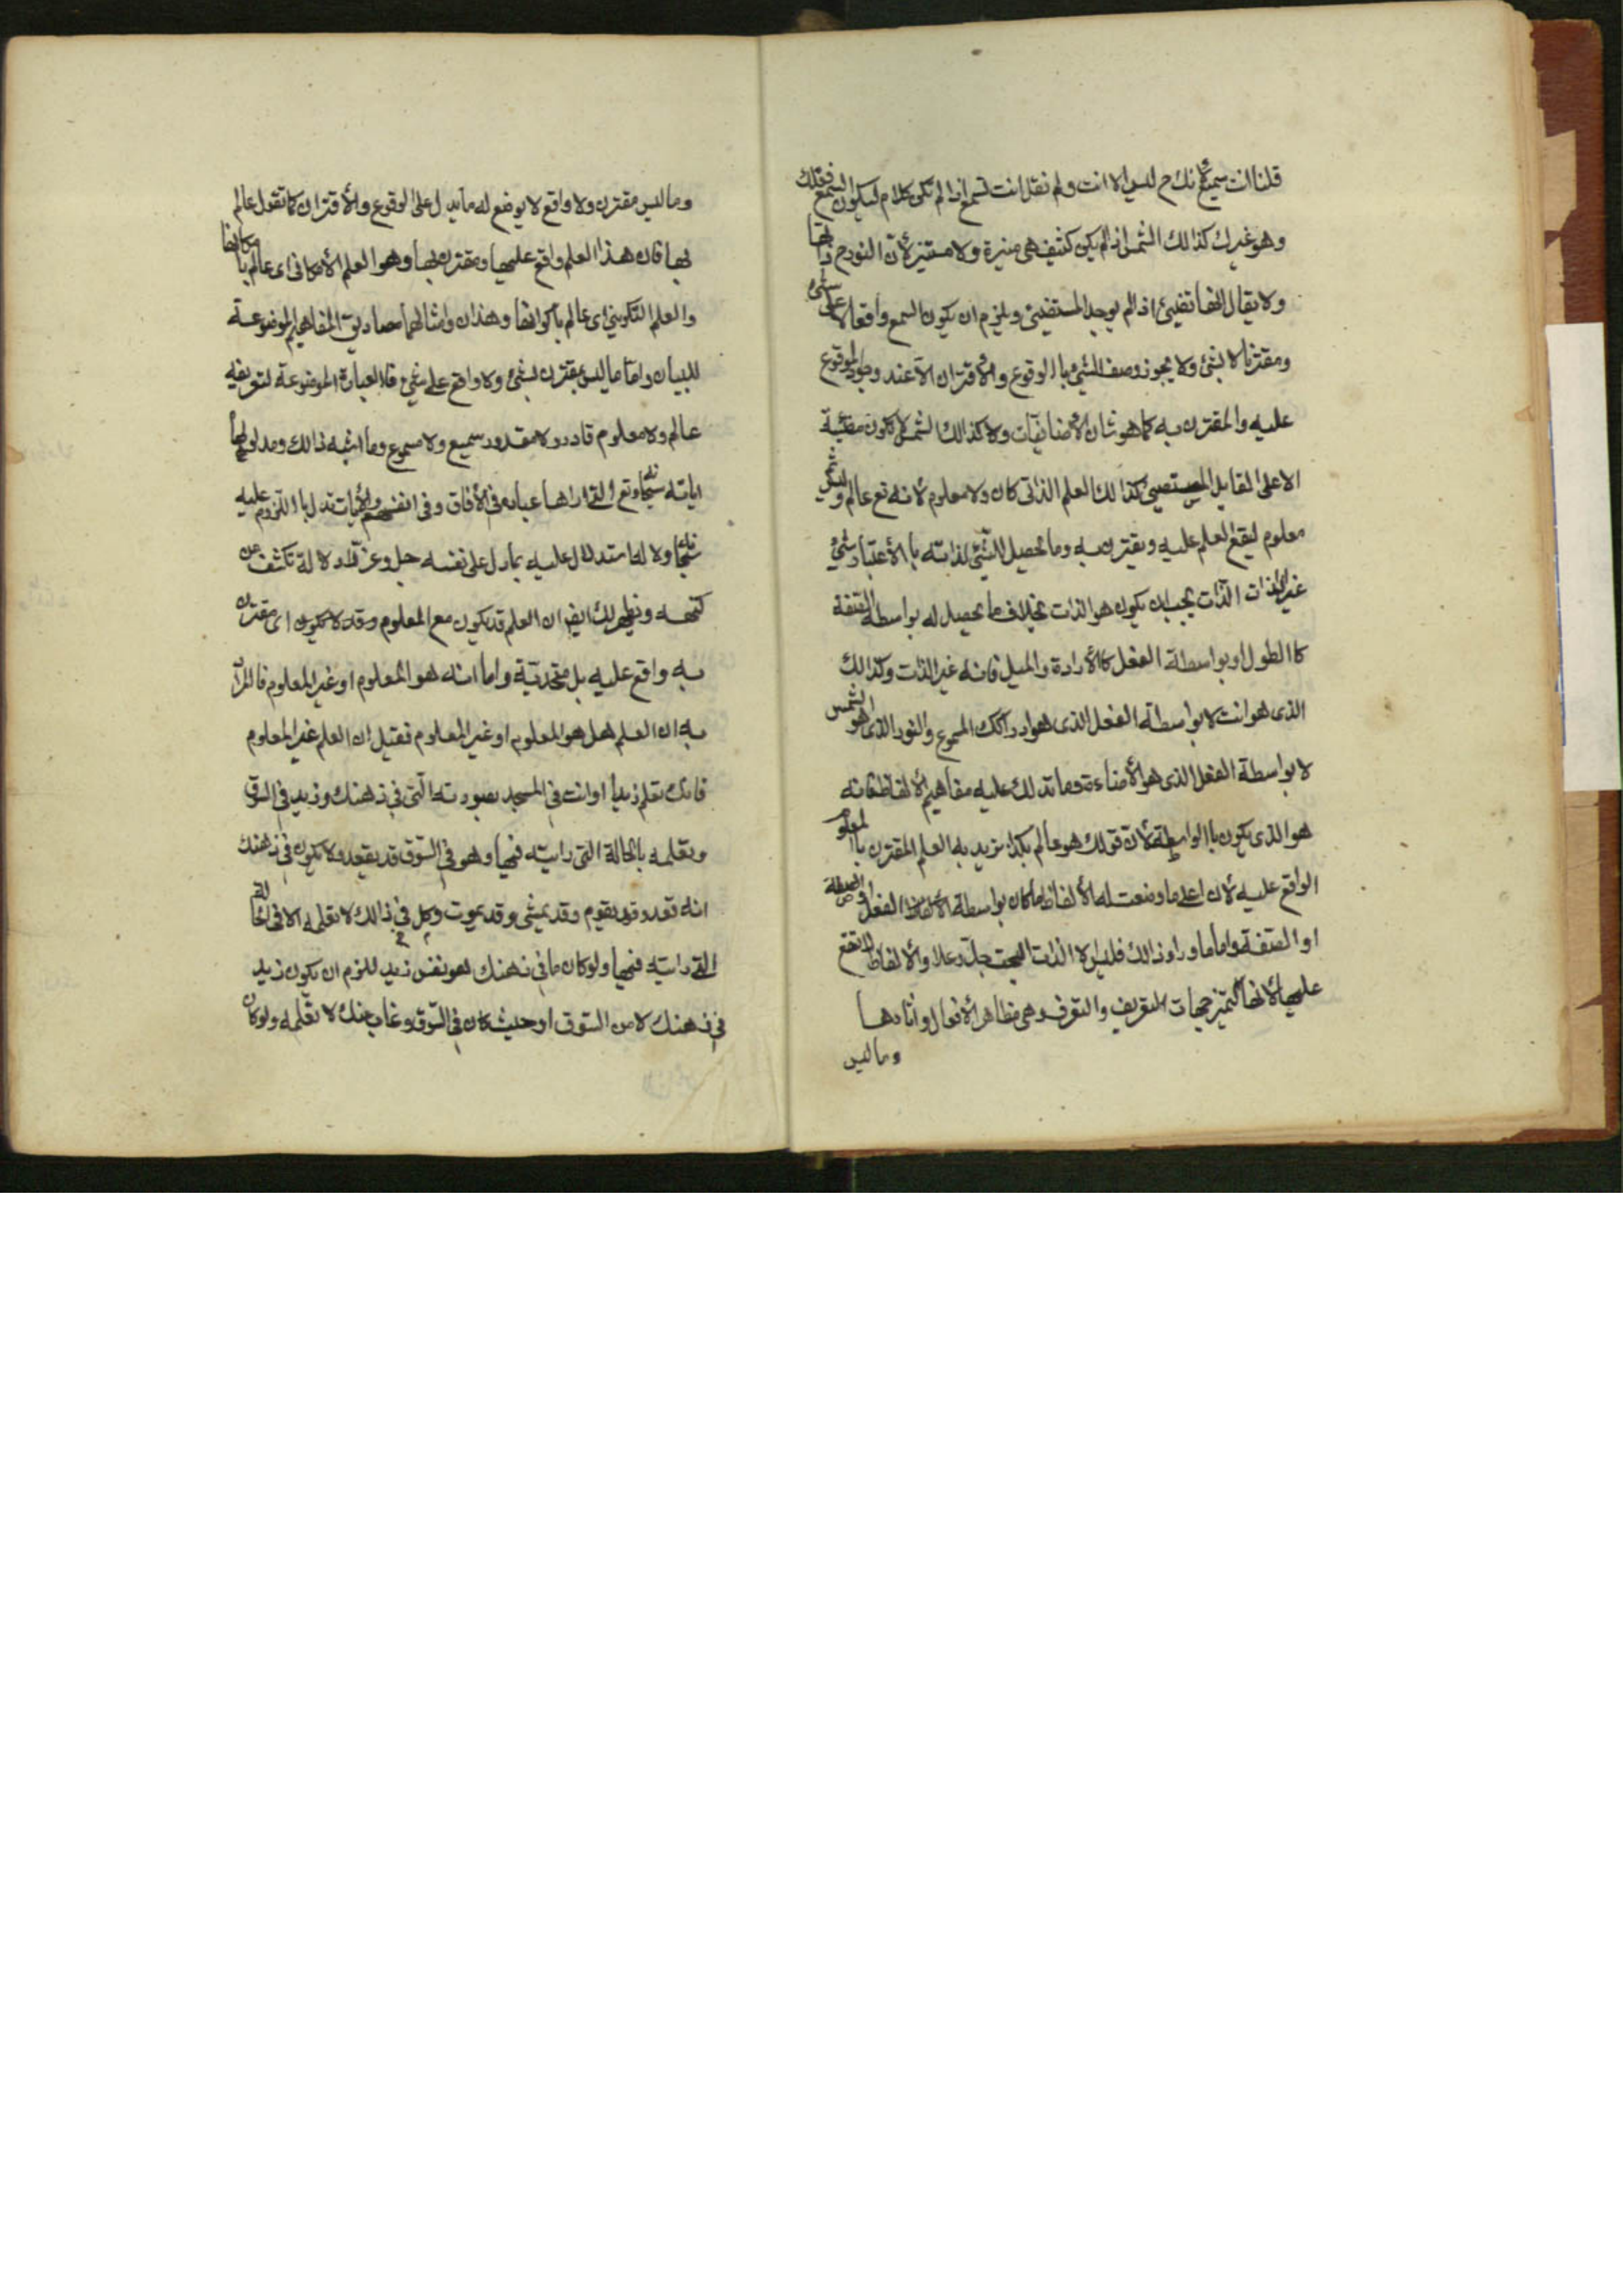 قلنا انت سميع لانك ح ليس الا انت ولم نقل انت تسمع اذا لم تكن كلام ليكون السمع فعلك
وهو غيرك كذالك الشمس اذا لم يكن كثيف هى منيرة ولا مستنير لأن النور ح ذاتها
ولا يقال انها تضيئ اذ الم يوجد المستضيئ ويلزم ان يكون السمع واقعا لا على شئ
ومقترنا لا بشئ ولا يجوز وصف الشئ باالوقوع والاقتران الا عند وجود الموقوع
عليه والمقترن به كما هو شان الأضافيات ولا كذالك الشمس لا تكون مضيئة
الا على المقابل المستضيئ كذالك العلم الذاتى كان ولا معلوم لأنه تع عالم وليس ثم
معلوم ليقع العلم عليه ويقترن به وما يحصل للشئ لذاته باالأعتبار شئ
غير الذات الذات يجب ان يكون هو الذات بخلاف ما يحصل له بواسطة الصفة
كاالطول او بواسطة الفعل كاالأرادة والميل فانه غير الذات وكذالك
الذى هو انت لا بواسطة الفعل الذى هو ادراكك المسموع والنور الذى هو الشمس
لا بواسطة الفعل الذى هو الأضاءة وما تدلك عليه مفاهيم الألفاظ فانه
هو الذى يكون باالواسطة لأن قولك هو عالم بكذا تريد به العلم المقترن باالمعلوم
الواقع عليه لأن اعلى ما وضعت له الألفاظ ما كان بواسطة الفعل
او الصفة واما ما وراء ذالك فليس الا الذات البحت جل وعلا والألفاظ لا تقع
عليها لأنها لتميز جهات التعريف والتعرف وهى مظاهر الأفعال واثارها
وما ليس
وما ليس مقترن ولا واقع لا يوضع له ما يدل على الوقوع والأقتران كما تقول عالم
بها فان هذا العلم واقع عليها ومقترن بها وهو العلم الأمكانى اى عالم باامكانها
والعلم التكوينى اى عالم باكوانها وهذان وامثالهما مصاديق المفاهيم الموضوعة
للبيان واما ما ليس بمقترن بشئ ولا واقع على شئ فلا العبارة الموضوعة لتعريفه
عالم ولا معلوم قادر ولا مقدور سميع ولا مسموع وما اشبه ذالك ومدلولها
اياته سبحانه وتع التى اراها عباده فى الأفاق وفى انفسهم والأيات تدل باللزوم عليه
سبحانه ولا لها استدلال عليه بما دل على نفسه جل وعز لا دلالة تكشف عن
كنهه ويظهر لك ايض ان العلم قد يكون مع المعلوم وقد لا يكون اى مقترن
به واقع عليه بل متحد به واما انه هو المعلوم او غير المعلوم فالمراد
به ان العلم هل هو المعلوم او غير المعلوم فقيل ان العلم غير المعلوم
فانك تعلم زيدا وانت فى المسجد بصورته التى فى ذهنك وزيد فى السوق
وتعلمه باالحالة التى رايته فيها وهو فى السوق قد يقعد ولا يكون فى ذهنك
انه قعد وقد يقوم وقد يمشى وقد يموت وكل فى ذالك لا تعلمه الا فى الحالة
التى رايته فيها ولو كان ما فى ذهنك هو نفس زيد للزم ان يكون زيد
فى ذهنك لا من السوق او حيث كان فى السوق وغاب عنك لا تعلمه ولو كان